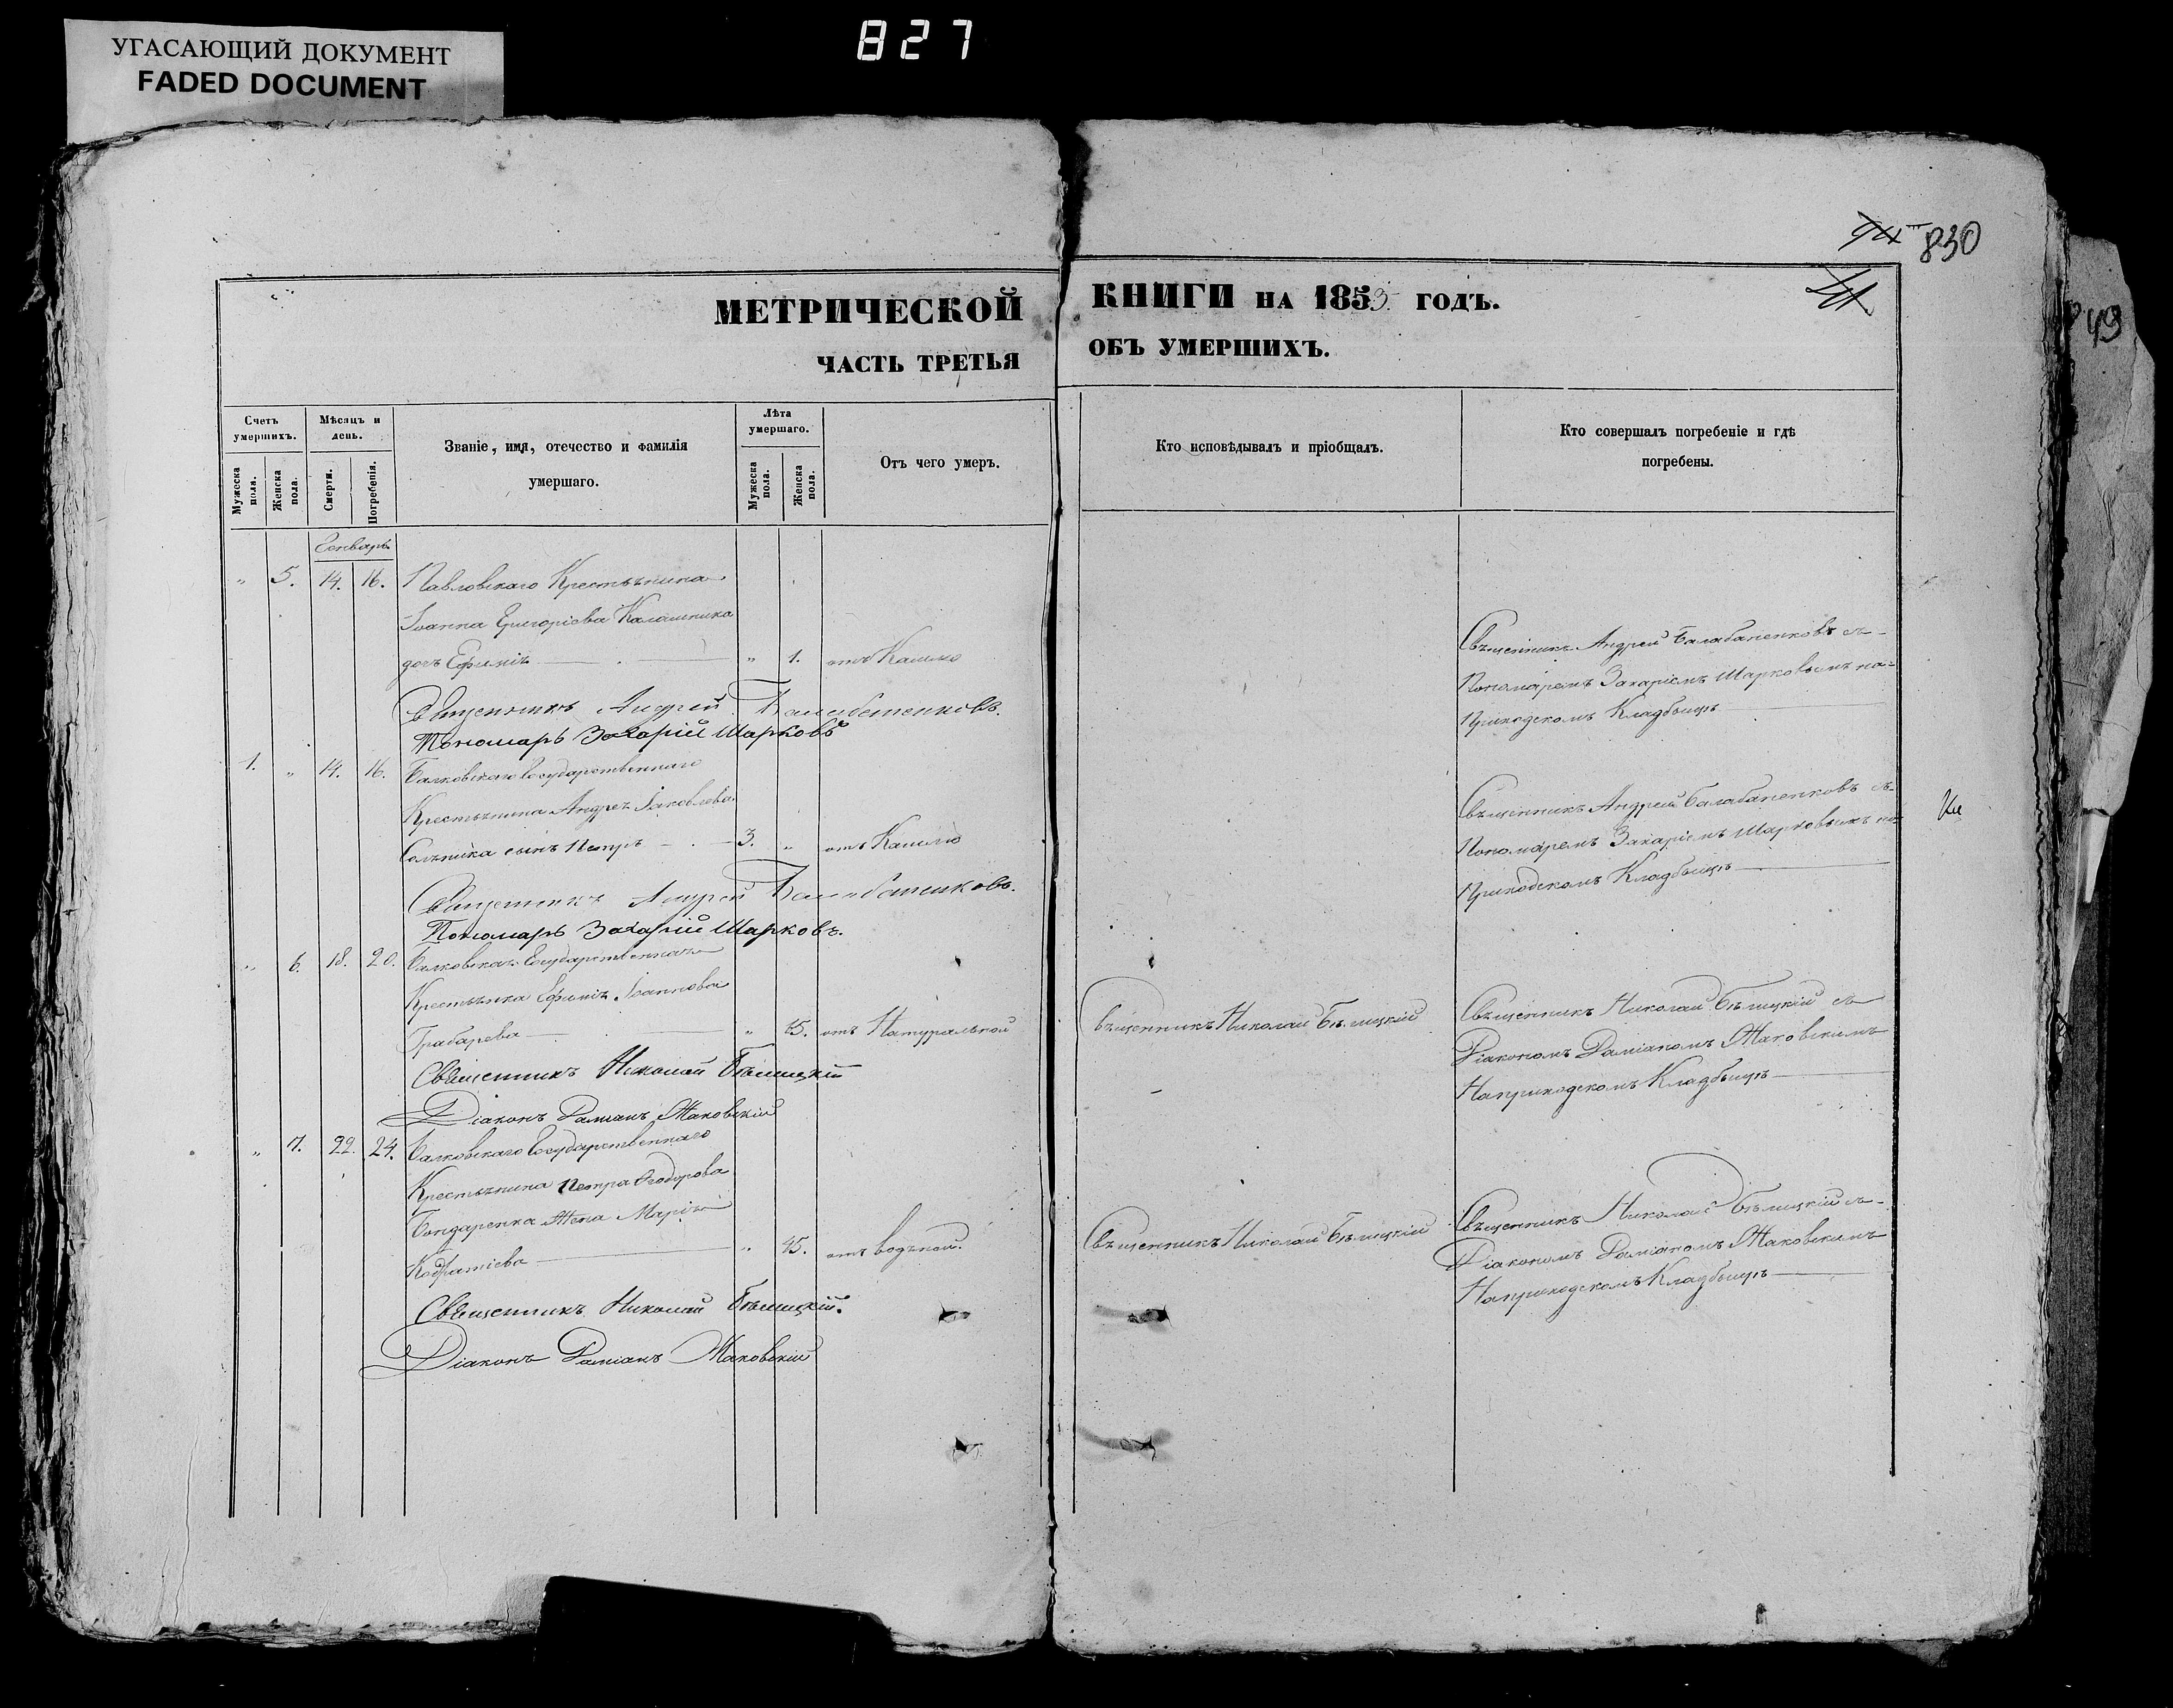 УГАСАЮЩИЙ ДОКУМЕНТ
FADED DOCUMENT
827
830
49
МЕТРИЧЕСКОЙ КНИГИ НА 1853 ГОДЪ.
ЧАСТЬ ТРЕТЬЯ ОБЪ УМЕРШИХЪ.
Счетъ умершихъ.
Мужеска пола.
Женска пола.
Мѣсяцъ и день.
Смерти.
Погребенія.
Званіе, имя, отечество и фамилія
умершаго.
Лѣта умершаго.
Мужеска пола.
Женска пола.
Отъ чего умеръ.
Кто исповѣдывалъ и пріобщалъ.
Кто совершалъ погребеніе и гдѣ
погребены.
Генварь
" 5. 14. 16. Павловскаго Крестьянина
Іоанна Григоріева Калашника
дочь Ефимія " 1. отъ Кашлю
Священникъ Андрей Балабаненковъ съ
Пономаремъ Захаріемъ Марковымъ на
Приходскомъ Кладбищѣ
Священникъ Андрей Балабаненковъ.
Пономарь Захарій Марковъ
1. " 14. 16. Валковскаго Государственнаго
Крестьянина Андрея Іаковлева
сынъ Петръ 3. " отъ Кашлю
Священникъ Андрей Балабаненковъ съ
Пономаремъ Захаріемъ Марковымъ на
Приходскомъ Кладбищѣ
Священникъ Андрей Балабаненковъ.
Пономарь Захарій Марковъ.
" 6. 18. 20. Валковская Государственная
Крестьянка Ефимія Іоаннова
Грабарева " 45. отъ Натуральной
Священникъ Николай Бѣлицкій
Священникъ Николай Бѣлицкій съ
Діакономъ Даміаномъ Маковскимъ
На приходскомъ Кладбищѣ
Священникъ Николай Бѣлицкій
Діаконъ Даміанъ Маковскій
" 7. 22. 24. Валковскаго Государственнаго
Крестьянина Петра Ѳеодорова
Бондаренка Жена Марія
Кодратіева " 45. отъ водяной.
Священникъ Николай Бѣлицкій
Священникъ Николай Бѣлицкій съ
Діакономъ Даміаномъ Маковскимъ
На приходскомъ Кладбищѣ
Священникъ Николай Бѣлицкій.
Діаконъ Даміанъ Маковскій